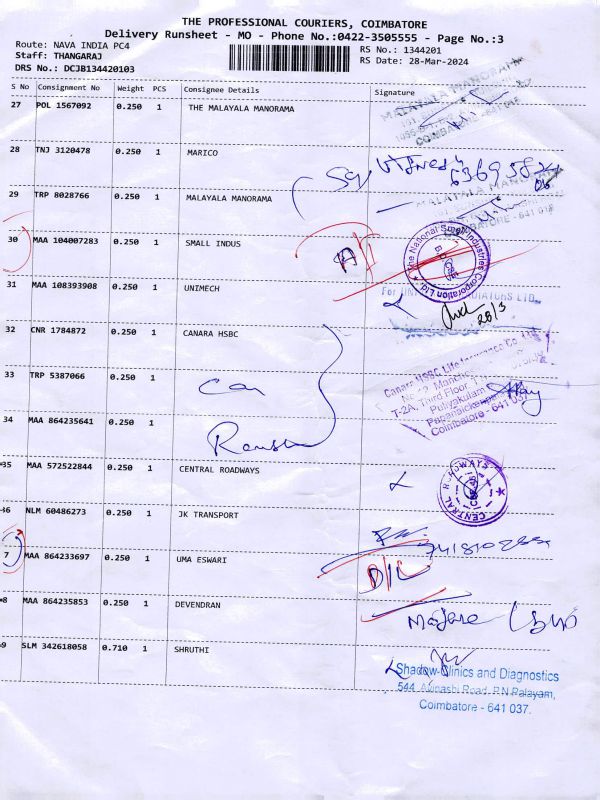 THE PROFESSIONAL COURIERS, COIMBATORE
Delivery Runsheet - MO - Phone No.:0422-3505555 - Page No.:3
Route: NAVA INDIA PC4
RS No.: 1344201
Staff: THANGARAJ
RS Date: 28-Mar-2024
DRS No.: DCJB134420103
S No Consignment No Weight PCS Consignee Details Signature
27 POL 1567092 0.250 1 THE MALAYALA MANORAMA
MALAYALA MANORAMA
28 TNJ 3120478 0.250 1 MARICO
29 TRP 8028766 0.250 1 MALAYALA MANORAMA
MALAYALA MANORAMA
30 MAA 104007283 0.250 1 SMALL INDUS
The National Small Industries Corporation Ltd.
31 MAA 108393908 0.250 1 UNIMECH
28/3
32 CNR 1784872 0.250 1 CANARA HSBC
Canara HSBC Life Insurance Co Ltd
33 TRP 5387066 0.250 1
T-2A, Third Floor
Puliyakulam
Coimbatore - 641 037
34 MAA 864235641 0.250 1
35 MAA 572522844 0.250 1 CENTRAL ROADWAYS
CENTRAL ROADWAYS
46 NLM 60486273 0.250 1 JK TRANSPORT
7 MAA 864233697 0.250 1 UMA ESWARI
D/L
8 MAA 864235853 0.250 1 DEVENDRAN
9 SLM 342618058 0.710 1 SHRUTHI
Shadow Clinics and Diagnostics
544, Avinashi Road, P.N.Palayam,
Coimbatore - 641 037.